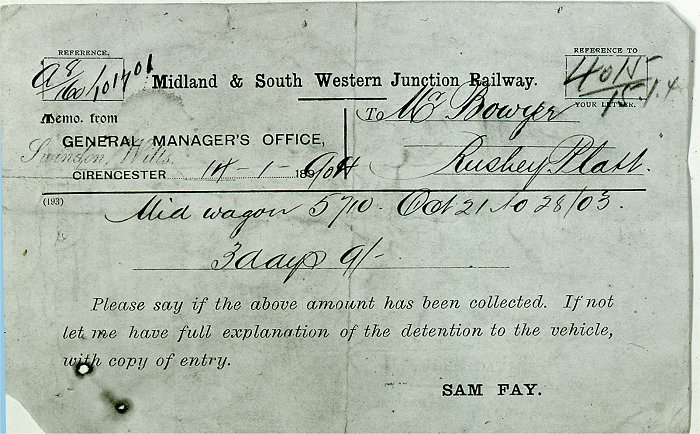 REFERENCE.
REFERENCE TO
Midland & South Western Junction Railway.
YOUR LETTER.
Memo. from
To Mr Bowyer
GENERAL MANAGER'S OFFICE,
Swindon, Wilts.
Rushey Platt.
CIRENCESTER 14-1-1904
(193)
Mid wagon 5710. Oct 21 to 28/03.
3 days 9/-
Please say if the above amount has been collected. If not
let me have full explanation of the detention to the vehicle,
with copy of entry.
SAM FAY.